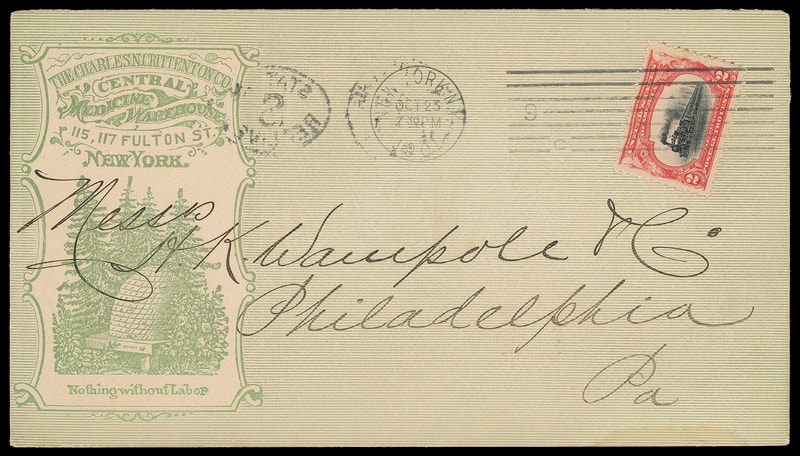 THE CHARLES N. CRITTENTON CO.
CENTRAL
MEDICINE WAREHOUSE
115, 117 FULTON ST.
NEW YORK.
Nothing without Labor
NEW YORK, N.Y.
OCT 23
7 30 PM
2 2
Messrs
H. K. Wampole & Co
Philadelphia
Pa